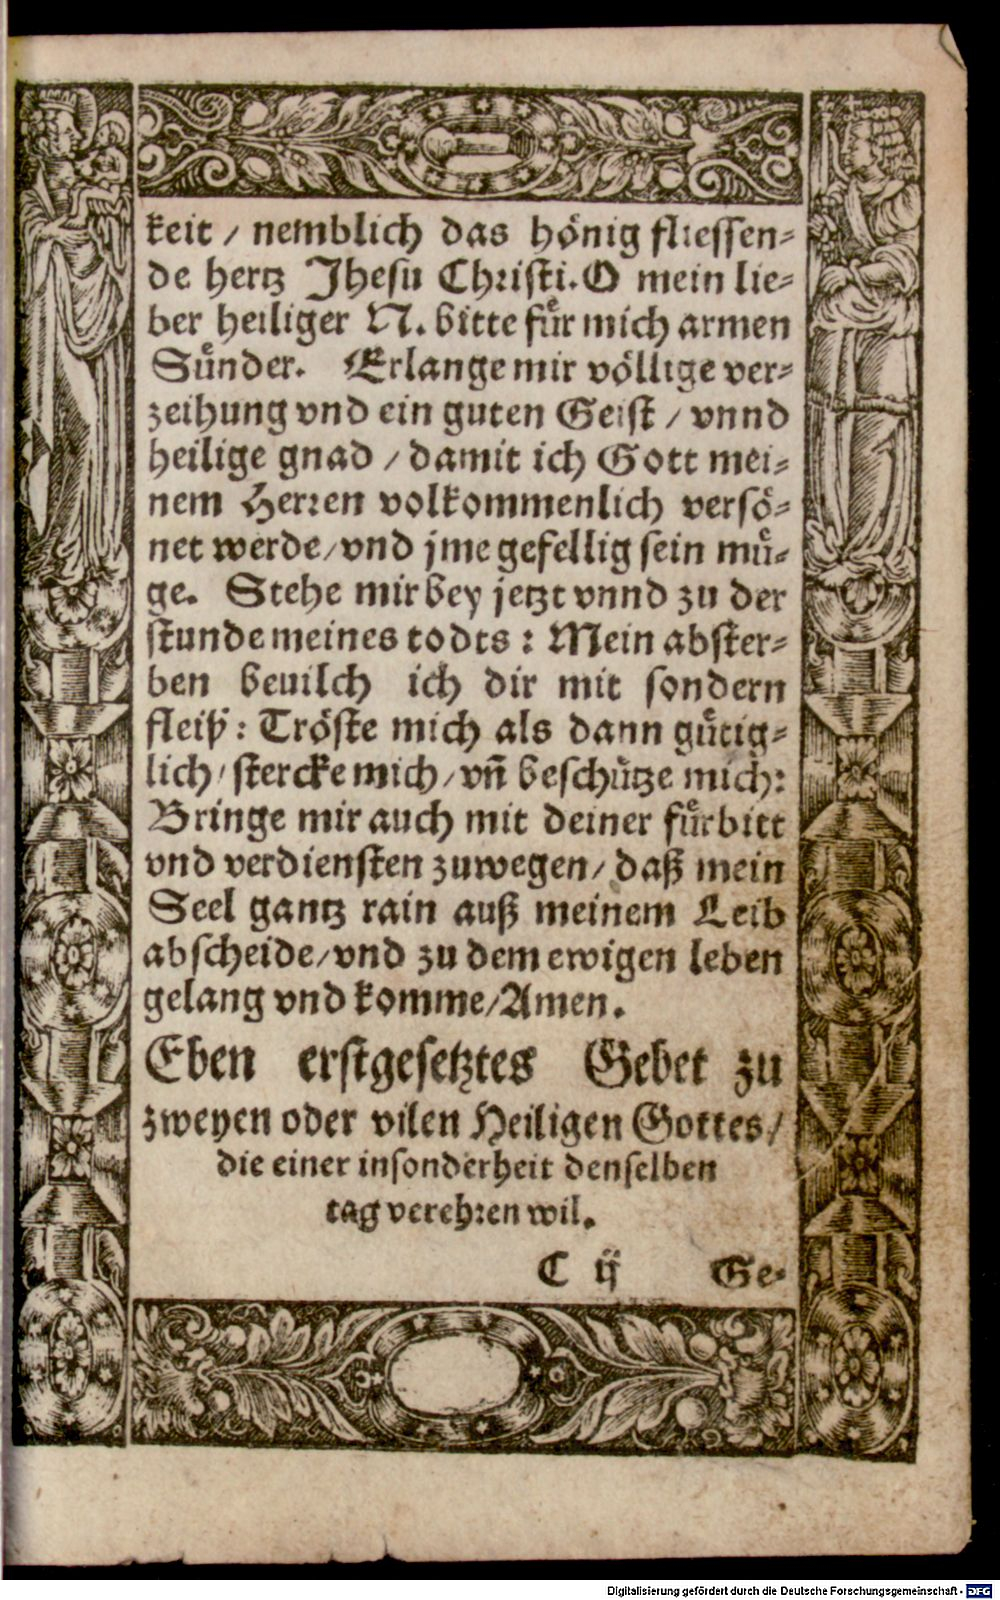 keit / nemblich das hoͤnig fliessen⸗
de hertz Jhesu Christi. O mein lie⸗
ber heiliger N. bitte fuͤr mich armen
Suͤnder. Erlange mir voͤllige ver⸗
zeihung vnd ein guten Geist / vnnd
heilige gnad / damit ich Gott mei⸗
nem Herren volkommenlich versoͤ⸗
net werde / vnd jme gefellig sein muͤ⸗
ge. Stehe mir bey jetzt vnnd zu der
stunde meines todts : Mein abster⸗
ben beuilch ich dir mit sondern
fleiß : Troͤste mich als dann guͤtig⸗
lich / stercke mich / vñ beschuͤtze mich:
Bringe mir auch mit deiner fuͤrbitt
vnd verdiensten zuwegen / daß mein
Seel gantz rain auß meinem Leib
abscheide / vnd zu dem ewigen leben
gelang vnd komme / Amen.
Eben erstgesetztes Gebet zu
zweyen oder vilen Heiligen Gottes /
die einer insonderheit denselben
tag verehren wil.
C ij Ge⸗
Digitalisierung gefördert durch die Deutsche Forschungsgemeinschaft - DFG